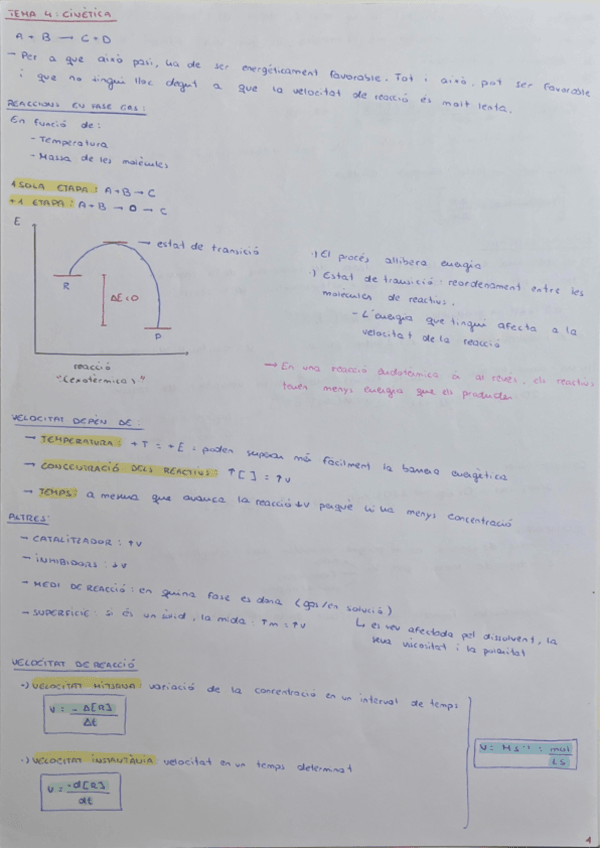 TEMA 4: CINÈTICA
A + B → C + D
→ Per a que això passi, ha de ser energèticament favorable. Tot i això, pot ser favorable
i que no tingui lloc degut a que la velocitat de reacció és molt lenta.
REACCIONS EN FASE GAS:
En funció de:
- Temperatura
- Massa de les molècules
1 SOLA ETAPA: A + B → C
+ 1 ETAPA: A + B → D → C
E
→ estat de transició
R
ΔE < 0
P
reacció
"(exotèrmica)."
·) El procés allibera energia
·) Estat de transició: reordenament entre les
molècules de reactius.
- L'energia que tingui afecta a la
velocitat de la reacció
→ En una reacció endotèrmica és al revés, els reactius
tenen menys energia que els productes
VELOCITAT DEPÈN DE:
→ TEMPERATURA: + T = + E : poden superar més fàcilment la barrera energètica
→ CONCENTRACIÓ DELS REACTIUS: ↑[ ] = ↑v
→ TEMPS: a mesura que avança la reacció ↓v perquè hi ha menys concentració
ALTRES:
→ CATALITZADOR: ↑v
→ INHIBIDORS: ↓v
→ MEDI DE REACCIÓ: en quina fase es dona (gas/en solució)
↳ es veu afectada pel dissolvent, la
seva viscositat i la polaritat
→ SUPERFICIE: si és un sòlid, la mida: ↑m = ↑v
VELOCITAT DE REACCIÓ
·) VELOCITAT MITJANA: variació de la concentració en un interval de temps
v = -Δ[R] / Δt
·) VELOCITAT INSTANTÀNIA: velocitat en un temps determinat
v = -d[R] / dt
v = M s⁻¹ = mol / L s
1